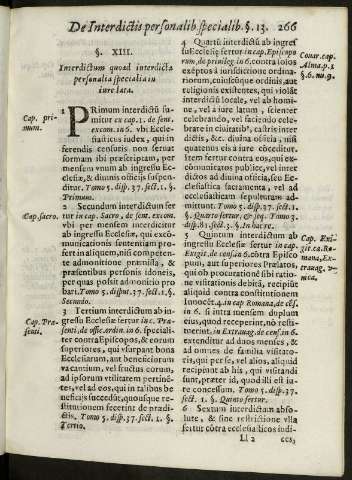 De Interdictis personalib. specialib. §. 13. 266
§. XIII.
Interdictum quoad interdicta
personalia specialia in
iure lata.
Cap. pri-
mum.
1 PRimum interdictũ su-
mitur ex cap. 1. de sent.
excom. in 6. vbi Eccle-
siasticus iudex, qui in
ferendis censuris non seruat
formam ibi præscriptam, per
mensem vnum ab ingressu Ec-
clesiæ, & diuinis officijs suspen-
ditur. Tomo 5. disp. 37. sect. 1. §.
Primum.
Cap. sacro.
2 Secundum interdictum fer
tur in cap. Sacro, de sent. excom.
vbi per mensem interdicitur
ab ingressu Ecclesiæ, qui exco-
municationis sententiam pro-
fert in aliquem, nisi competen-
te admonitione præmissa, &
præsentibus personis idoneis,
per quas possit admonitio pro
bari. Tomo 5. disput. 37. sect. 1. §.
Secundo.
Cap. Præ-
senti.
3 Tertium interdictum ab in
gressu Ecclesiæ fertur in c. Præs-
enti, de offic. ordin. in 6. speciali-
ter contra Episcopos, & eorum
superiores, qui vsurpant bona
Ecclesiarum, aut beneficiorum
vacantium, vel fructus eorum,
ad ipsorum vtilitatem pertinẽ-
tes, vel ad eos, qui in talibus be
neficijs succedũt, quousque re-
stitutionem fecerint de prædi-
ctis. Tomo 5. disp. 37. sect. 1. §.
Tertio.
4 Quartũ interdictũ ab ingres
su Ecclesiæ fertur in cap. Episcopo
rum, de priuileg. in 6. contra loios
exẽptos à iurisdictione ordina-
riorum, cuiuscunq; ordinis, aut
religionis existant, qui violãt
interdictũ locale, vel ab homi-
ne, vel à iure latum, scienter
celebrando, vel faciendo cele-
brare in ciuitatib9, castris inter
dictis, &c. diuina officia, nisi
quatenus eis à iure cõceditur.
Item fertur contra eos, qui ex-
cõmunicatos publicè, vel inter
dictos ad diuina officia, seu Ec-
clesiastica sacramenta, vel ad
ecclesiasticam sepulturam ad-
mittunt. Tomo 5. disp. 37. sect. 1.
§. Quarto fertur, & seq. Tomo 3.
disp. 81. sect. 3. §. In hac re.
Conar. cap.
Alma. p. 1
§. 6. nu. 9.
5 Quintum interdictum ab
ingressu Ecclesiæ fertur in cap.
Exigit. de censib. in 6. cõtra Episco
pum, aut superiores Prælatos,
qui ob procurationẽ sibi ratio-
ne visitationis debitã, recipiũt
aliquid contra constitutionem
Innocẽt. 4. in cap. Romana, de cẽs.
in 6. si intra mensem duplum
eius, quod receperint, nõ resti-
tuerint, in Extrauag. de cens. in 6.
extenditur ad duos menses, &
ad omnes de familia visitato-
ris, qui per se, vel alios, aliquid
directè, vel indirectè, susceperint
sunt, præter id, quod illi est iu-
re concessum. Tomo 5. disp. 37.
sect. 1. §. Quinto fertur.
Cap. Exi-
git. ca. Ro-
mana, Ex-
trauag. v-
nica.
6 Sextum interdictum abso-
lutè, & sine restrictione vlla
fertur contra ecclesiasticos iudi-
Ll 2 ces,